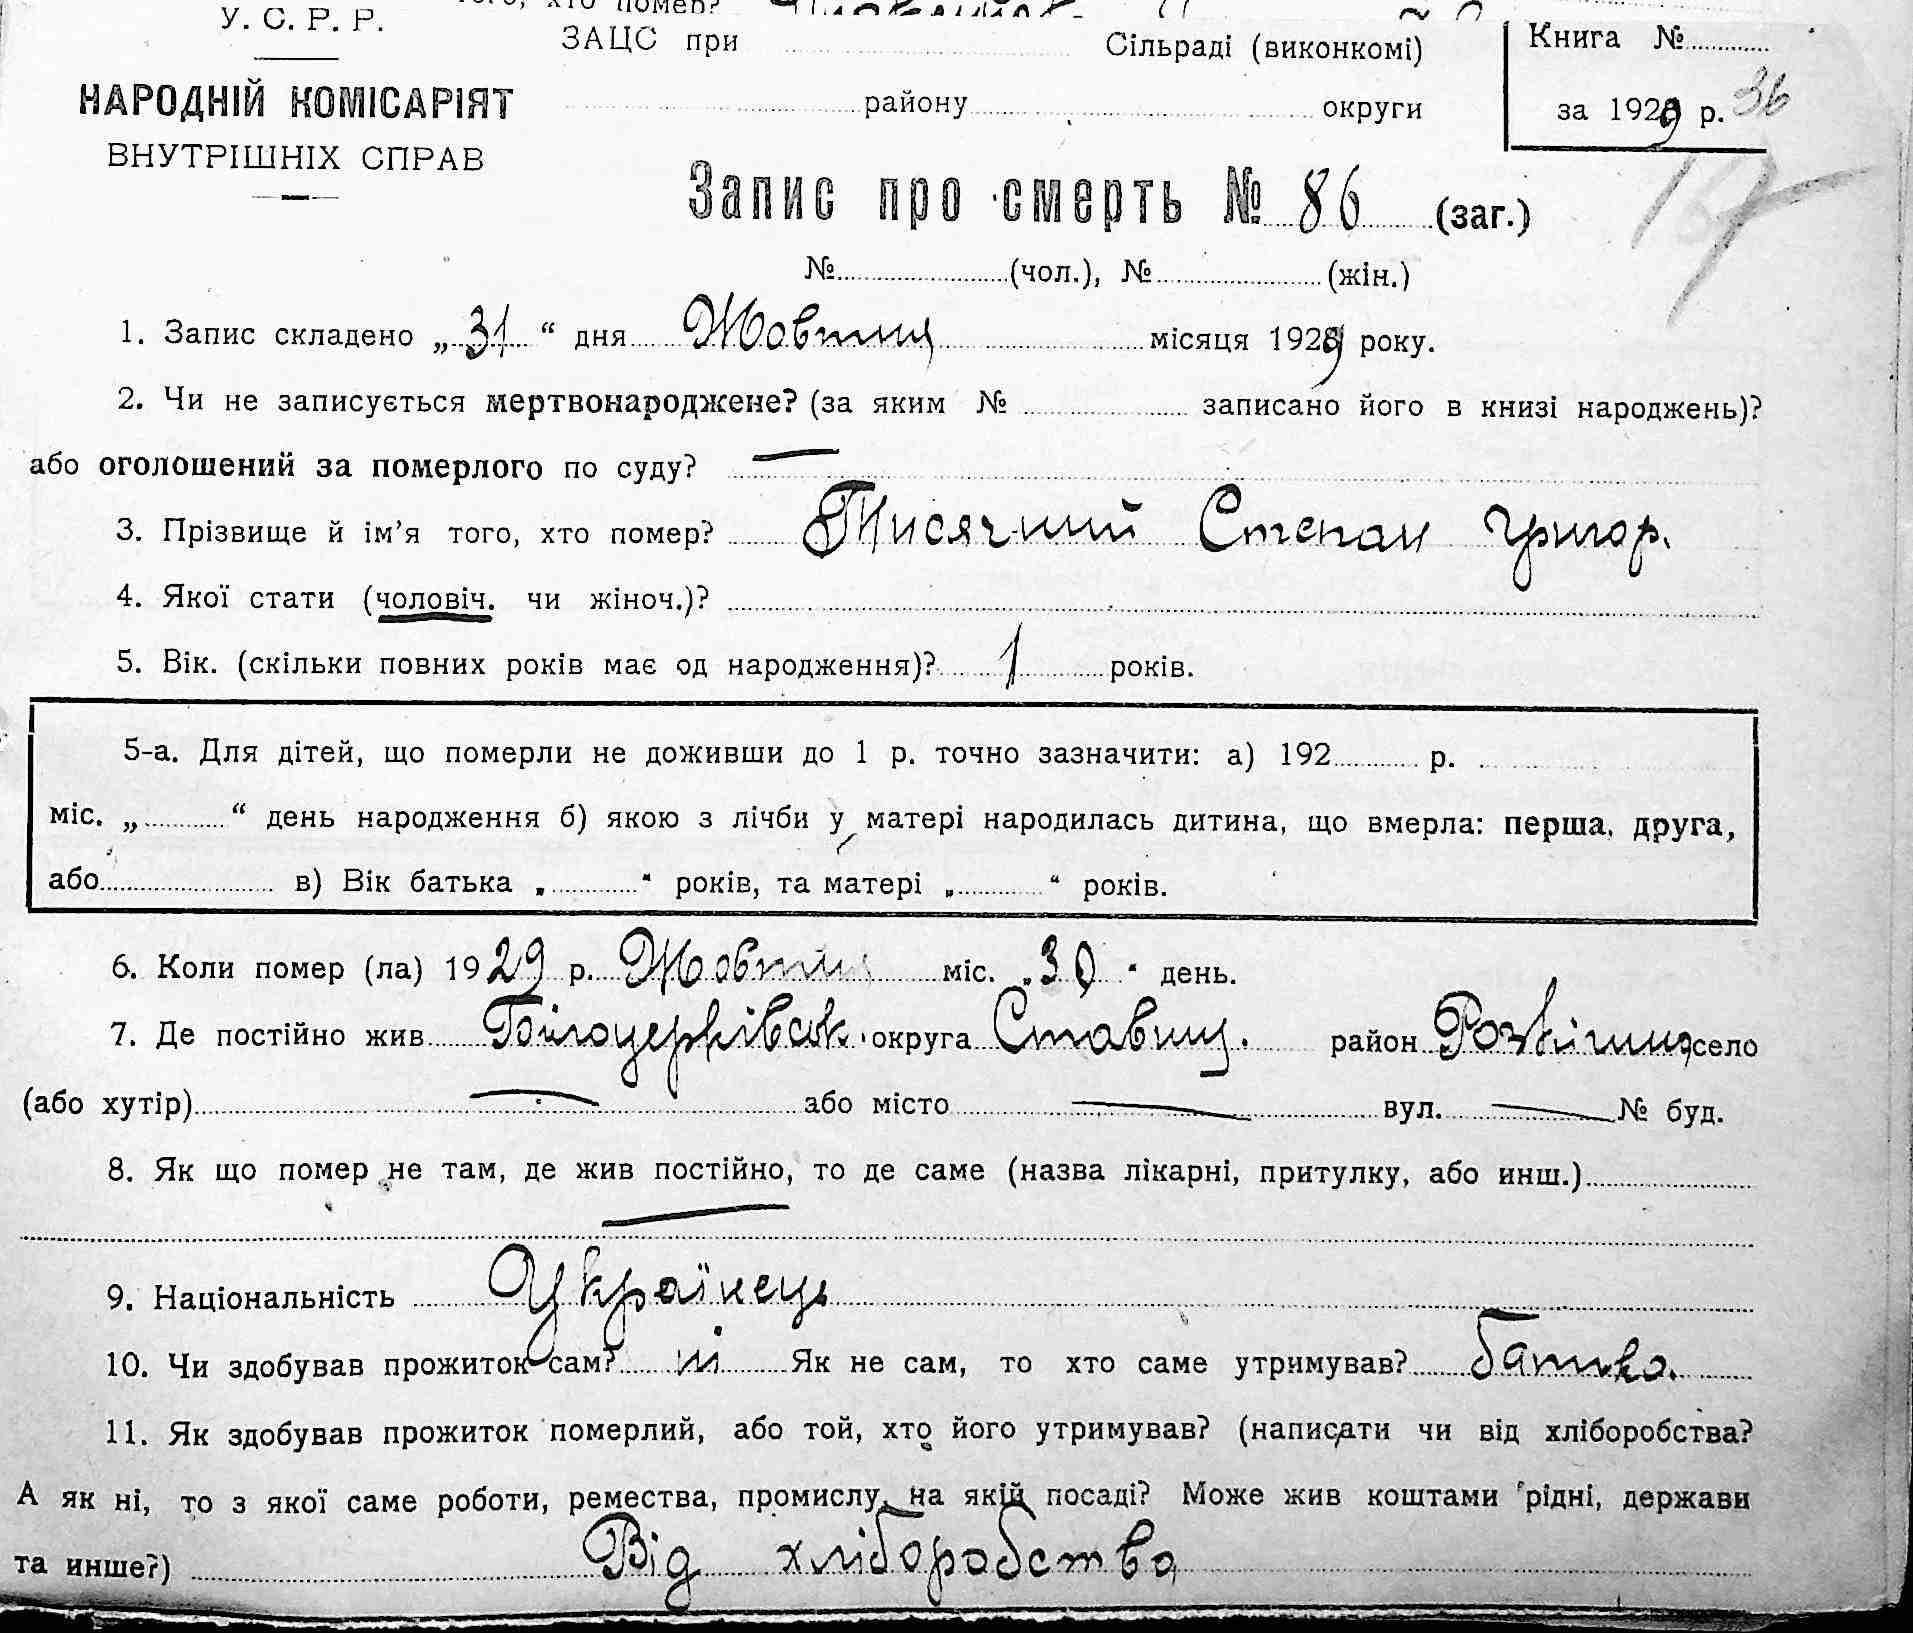 У. С. Р. Р.
ЗАЦС при Сільраді (виконкомі)
Книга №
НАРОДНІЙ КОМІСАРІЯТ
району округи
за 1929 р. 36
ВНУТРІШНІХ СПРАВ
Запис про смерть № 86 (заг.)
№ (чол.), № (жін.)
1. Запис складено „31“ дня Жовтня місяця 1929 року.
2. Чи не записується мертвонароджене? (за яким № записано його в книзі народжень)?
або оголошений за померлого по суду? —
3. Прізвище й ім’я того, хто помер? Тисячний Степан Григор.
4. Якої стати (чоловіч. чи жіноч.)?
5. Вік. (скільки повних років має од народження)? 1 років.
5-а. Для дітей, що померли не доживши до 1 р. точно зазначити: а) 192 р.
міс. „ “ день народження б) якою з лічби у матері народилась дитина, що вмерла: перша, друга,
або в) Вік батька „ “ років, та матері „ “ років.
6. Коли помер (ла) 1929 р. Жовтня міс. „30“ день.
7. Де постійно жив Білоцерківськ. округа Ставищ. район село
(або хутір) — або місто — вул. — № буд.
8. Як що помер не там, де жив постійно, то де саме (назва лікарні, притулку, або инш.)
—
9. Національність Українець
10. Чи здобував прожиток сам? ні Як не сам, то хто саме утримував? батько.
11. Як здобував прожиток померлий, або той, хто його утримував? (написати чи від хліборобства?
А як ні, то з якої саме роботи, ремества, промислу, на якій посаді? Може жив коштами рідні, держави
та инше?) Від хліборобства